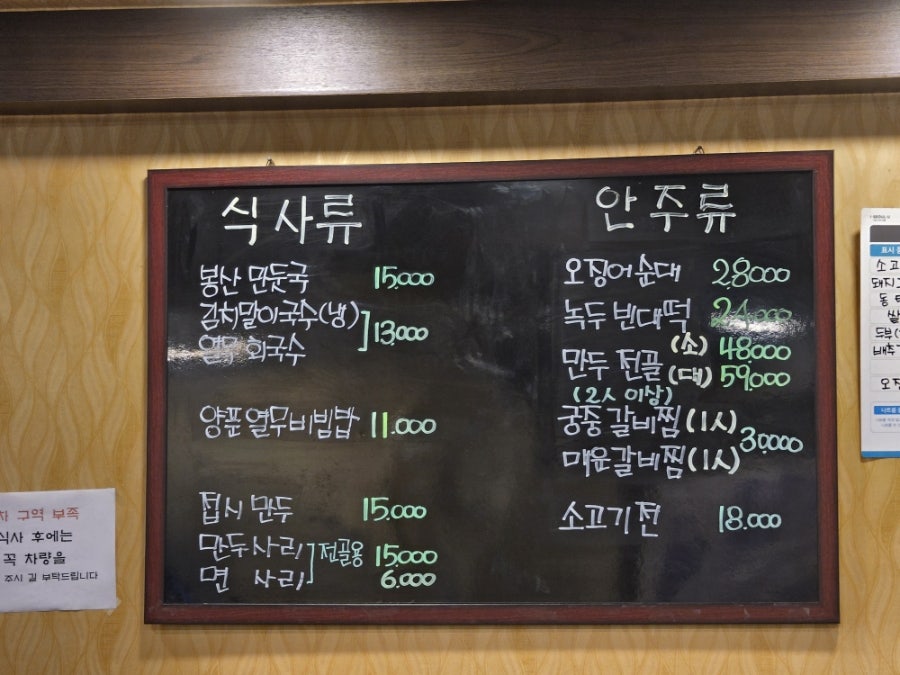 식사류
봉산 만둣국 15,000
김치말이국수(냉)
열무 회국수 13,000
양푼열무비빔밥 11,000
접시 만두 15,000
만두사리 전골용 15,000
면 사리 6,000
안주류
오징어순대 28,000
녹두 빈대떡
만두 전골 (소) 48,000
(대) 59,000
(2人 이상)
궁중갈비찜(1人)
매운갈비찜(1人) 30,000
소고기전 18,000
차 구역 부족
식사 후에는
꼭 차량을
주시길 부탁드립니다
소고
돼지고
두부(
배추
오징